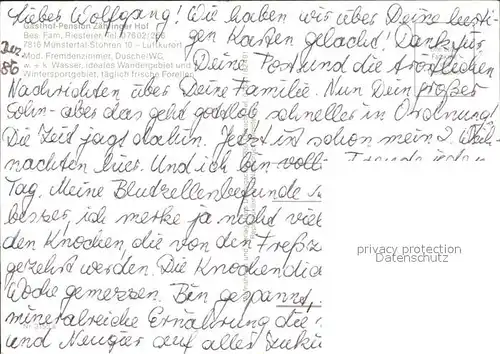 Lieber Wolfgang! Wie haben wir über Deine lusti-
gen Karten gelacht! Dank für
Gasthof-Pension Zähringer Hof
Bes. Fam. Riesterer, Tel. 07602/256
7816 Münstertal-Stohren 10 - Luftkurort
Mod. Fremdenzimmer, Dusche/WC,
w. + k. Wasser, ideales Wandergebiet und
Wintersportgebiet, täglich frische Forellen
Dez.
86
Deine Post und die tröstlichen
Nachrichten über Deine Familie. Nun Dein großer
Sohn - aber das geht gottlob schneller in Ordnung.
Die Zeit jagt dahin. Jetzt ist schon mein 2. Weih-
nachten hier. Und ich bin voll
Tag. Meine Blutzellenbefunde
besser, ich merke ja nicht viel
den Knochen, die von den Freßz
gezehrt werden. Die Knochendic
Woche gemessen. Bin gespannt,
mineralreiche Ernährung die
und Neugier auf alles Zukü
privacy protection
Datenschutz